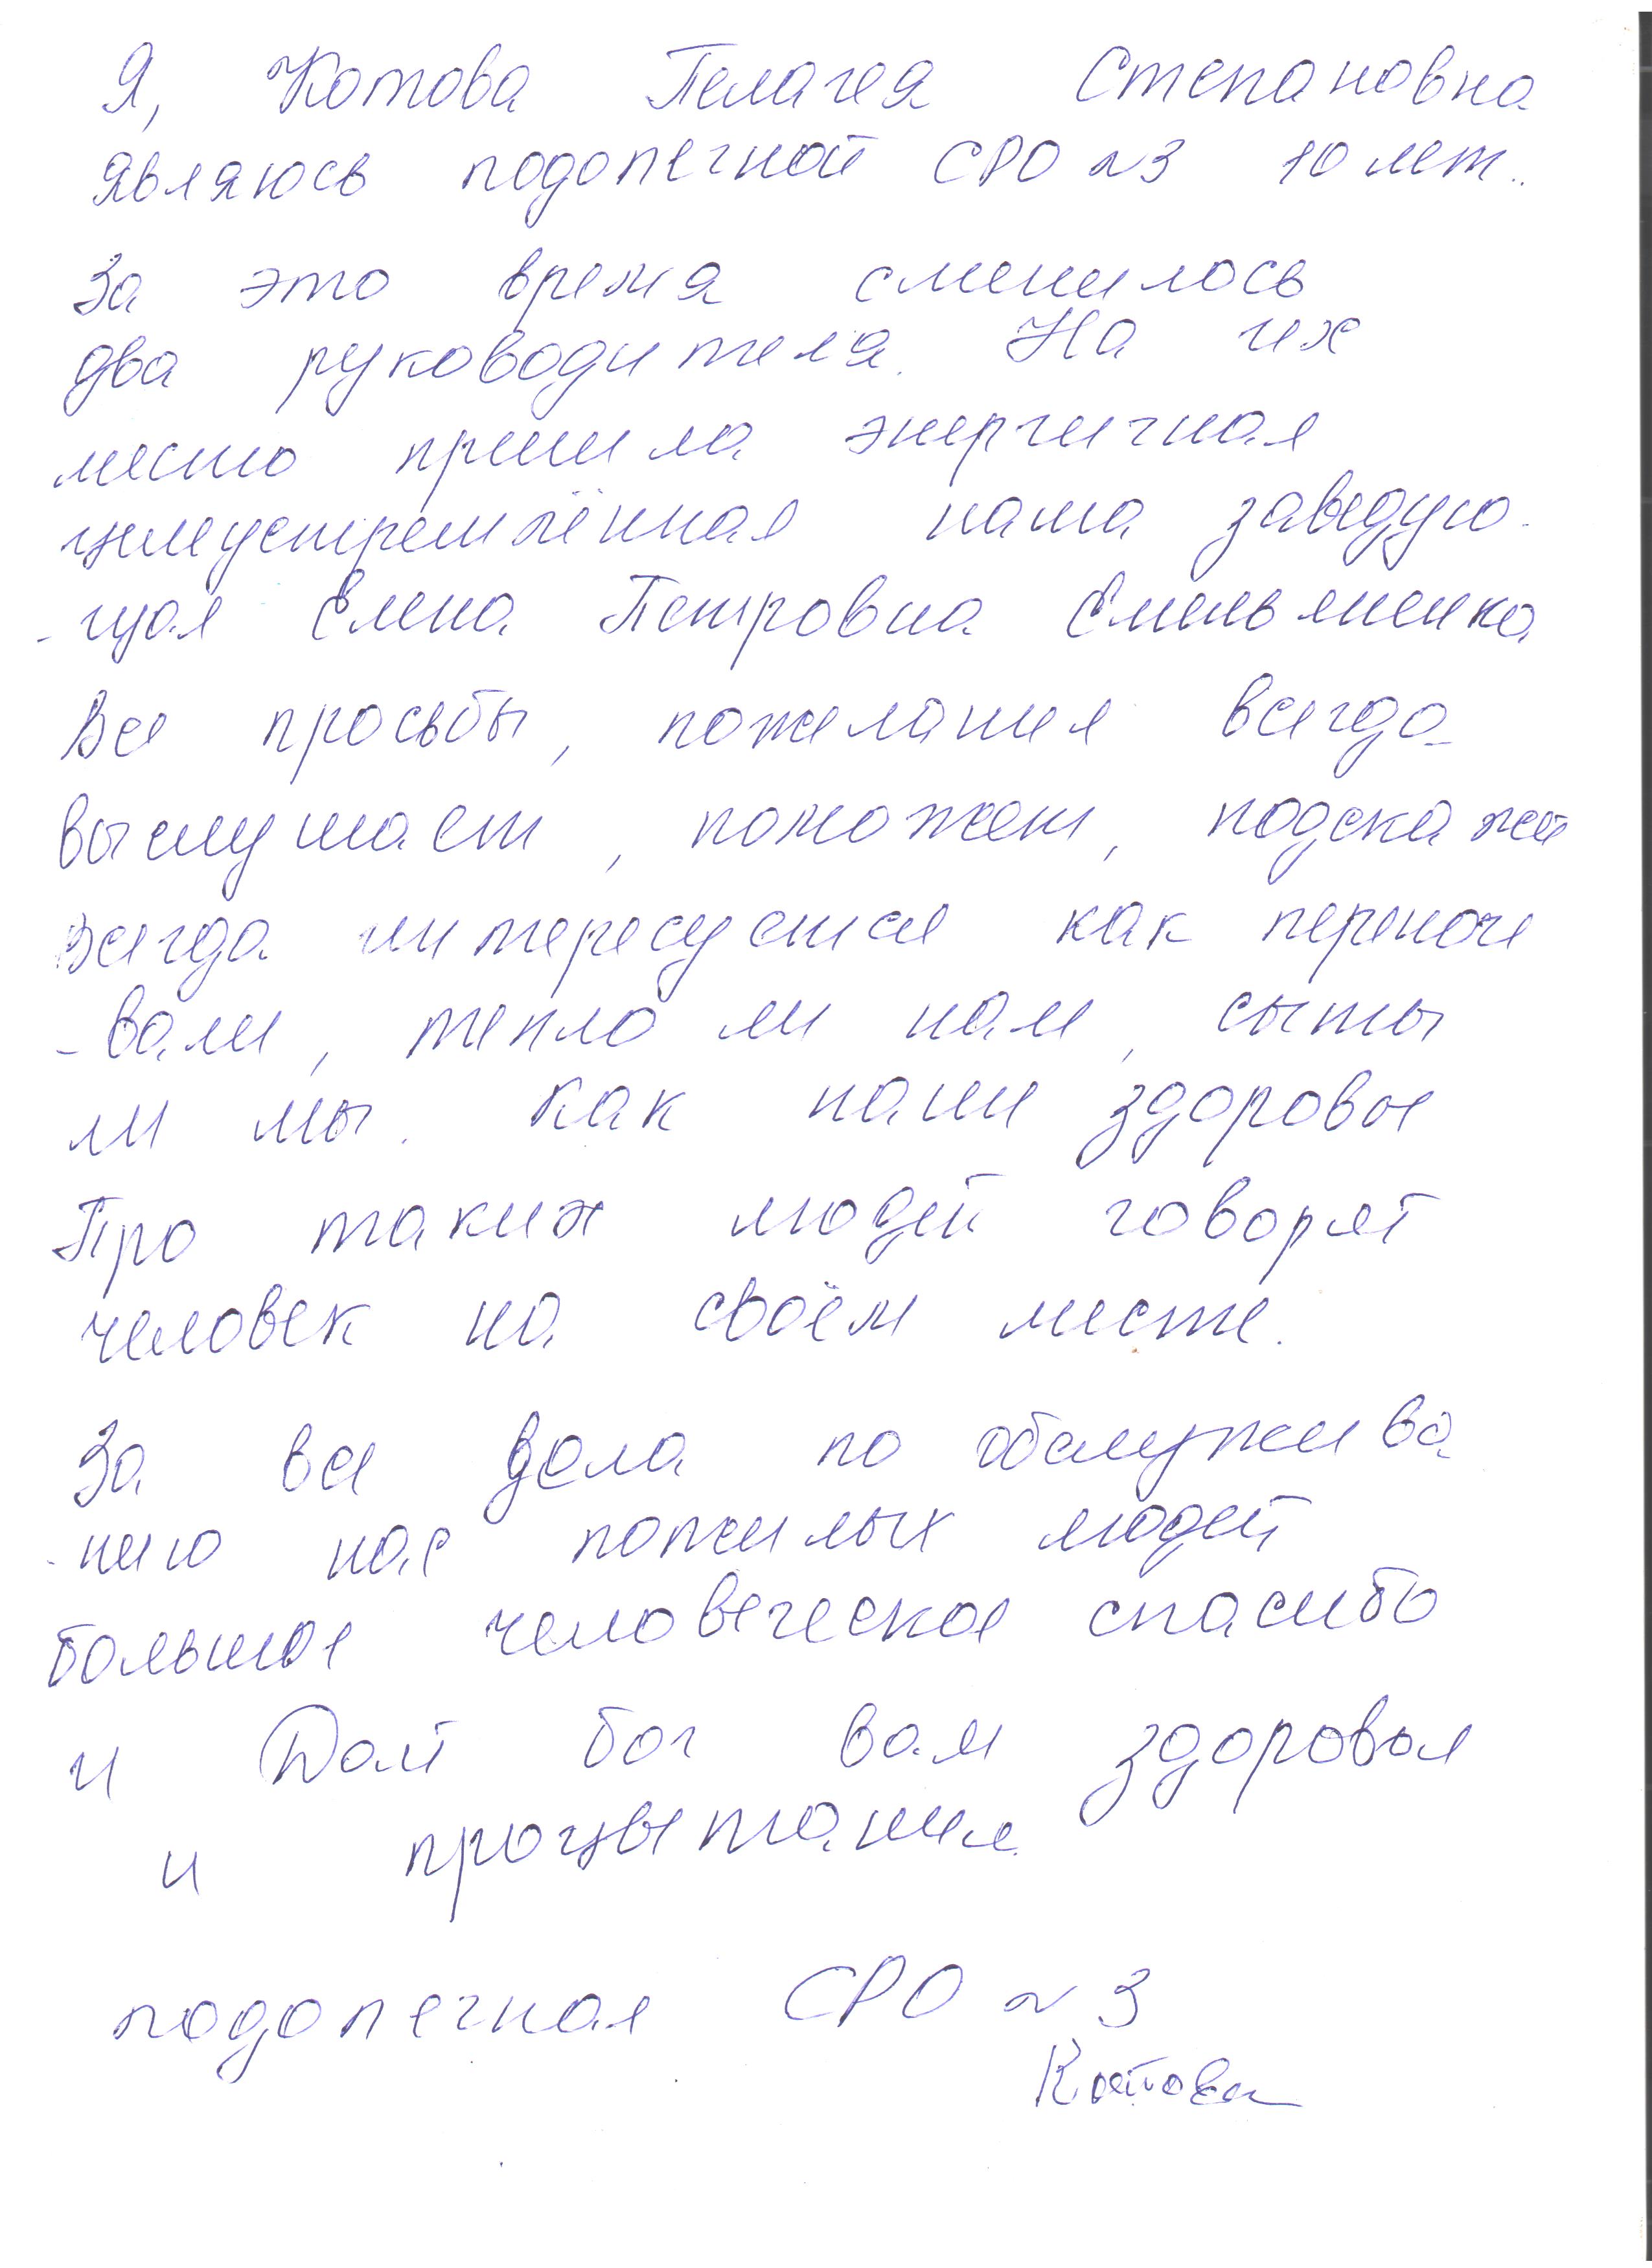 Я, Котова Пелагея Степановна
являюсь подопечной СРО N3 10 лет.
За это время сменилось
два руководителя. На их
место пришла энергичная
целеустремлённая наша заведую-
-щая Елена Петровна Емельяненко
Все просьбы, пожелания всегда
выслушает, поможет, подскажет
Всегда интересуется как переноче
-вали, тепло ли нам, сыты
ли мы. Как наши здоровье
Про таких людей говорят
человек на своём месте.
За все дела по обслужива
-нию нас пожилых людей
большое человеческое спасибо
и Дай бог вам здоровья
и процветания.
подопечная СРО N3
Котова